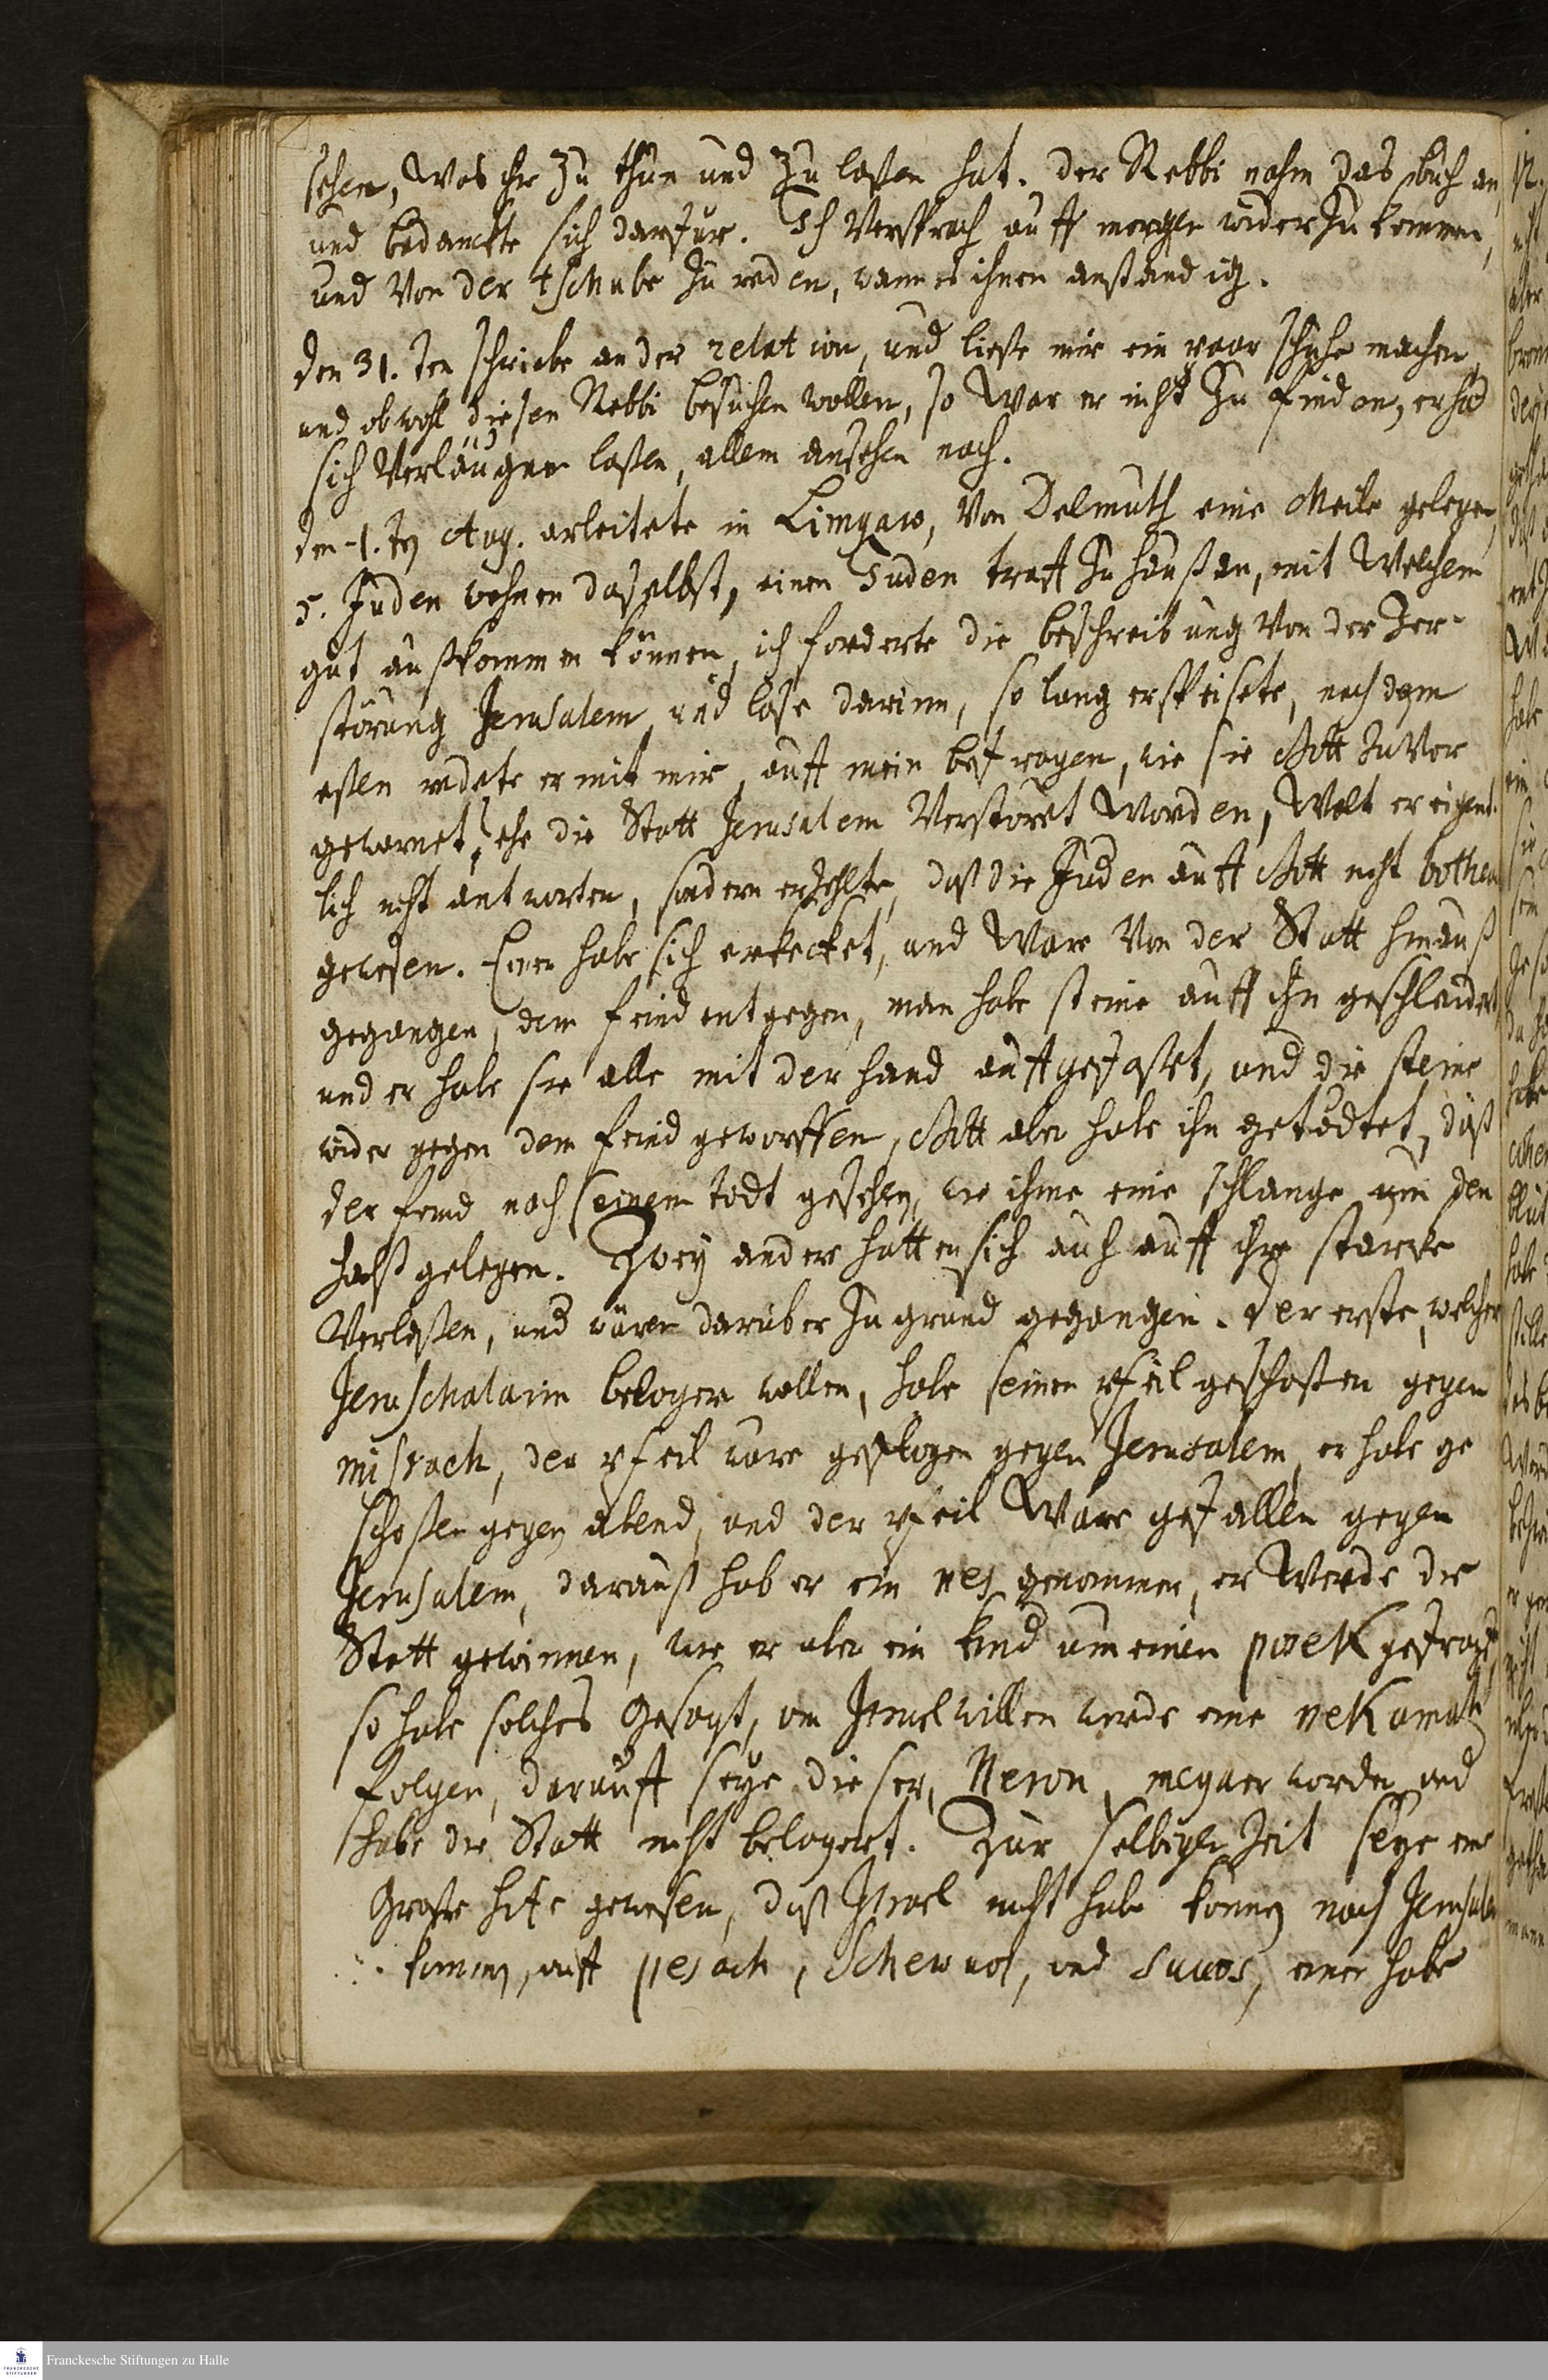 sehen, was ihr zu thun und zu laßen hat. der Rebbi nahm das buch an,
und bedanckte sich darfür. Ich versprach auff morgen wider zu kommen,
und von der tschube zu reden, wann es ihnen anständig.
den 31. ten schriebe an der relation, und ließe mir ein paar schuhe machen,
und obwohl diesen Rebbi besuchen wollen, so war er nicht zu finden, er hat
sich verläugnen laßen, allem ansehen nach.
den 1. ten Aug. arbeitete in Limgaw, von Delmuth eine Meile gelegen,
5. Juden wohnen daselbst, einen Juden traff zu haußen, mit welchem
gut außkommen können, ich forderte die beschreibung von der Zer-
störung Jerusalem, und lase darinn, so lang er speisete, nach dem
eßen redete er mit mir, auff mein befragen, wie sie Gott zuvor
gewarnet, ehe die Statt Jerusalem verstöret worden, wolt er eigent-
lich nicht antworten, sondern erzehlte, daß die Juden auff Gott nicht bothen
gewesen. Einer habe sich erkecket, und ware von der Statt hinauß
gegangen, dem feind entgegen, man habe steine auff ihn geschlaudert,
und er habe sie alle mit der hand auffgefaßet, und die steine
wider gegen dem feind geworffen, Gott aber habe ihn getödtet, daß
der feind nach seinem todt gesehen, wie ihme eine schlange um den
halß gelegen. Zwey andere hatten sich auch auff ihre stärcke
verlaßen, und wären darüber zu grund gegangen. Der erste, welcher
Jeruschalaim belagern wollen, habe seinen pfeil geschoßen gegen
misrach, der pfeil ware geflogen gegen Jerusalem, er habe ge
schoßen gegen abend, und der pfeil ware gefallen gegen
Jerusalem, darauß hab er ein nes genommen, er werde die
Statt gewinnen, wie er aber ein kind um einen posek gefragt,
so habe solches gesagt, um Israel willen werde eine nekamah
folgen, darauff seye dieser, Neron, megaer worden und
habe die Statt nicht belagert. Zur selbigen Zeit seye eine
Große hitze gewesen, daß Israel nicht habe können nach Jerusalem
kommen, auff pesach, Schewuos, und Suuos, einer habe
Franckesche Stiftungen zu Halle